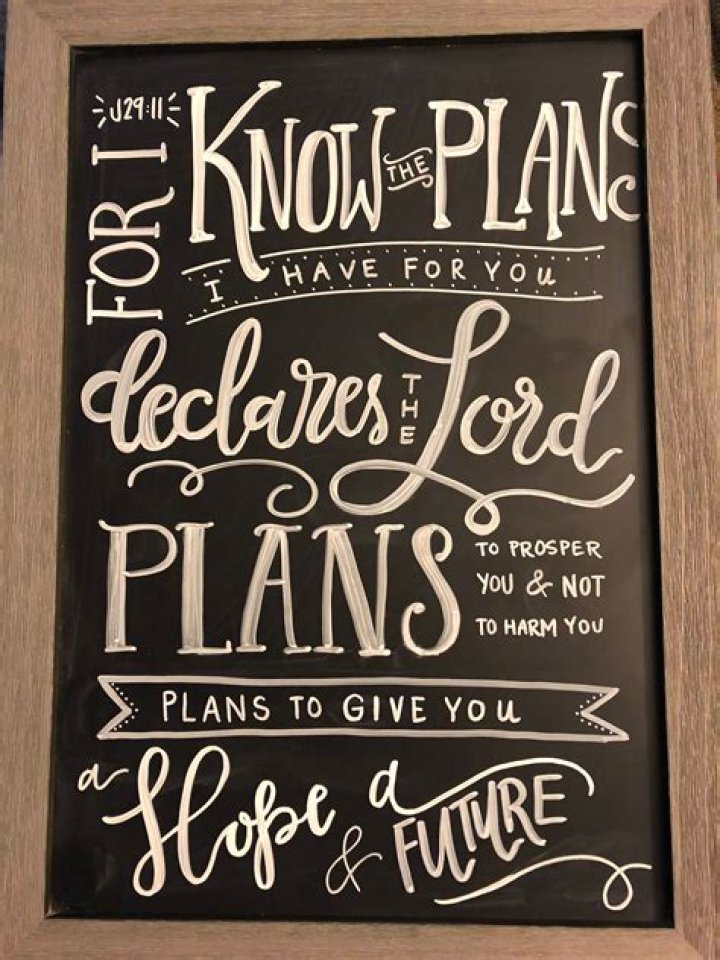 J29:11
FOR I
KNOW THE PLANS
I HAVE FOR YOU
declares THE Lord
PLANS
TO PROSPER
YOU & NOT
TO HARM YOU
PLANS TO GIVE YOU
a Hope & a FUTURE